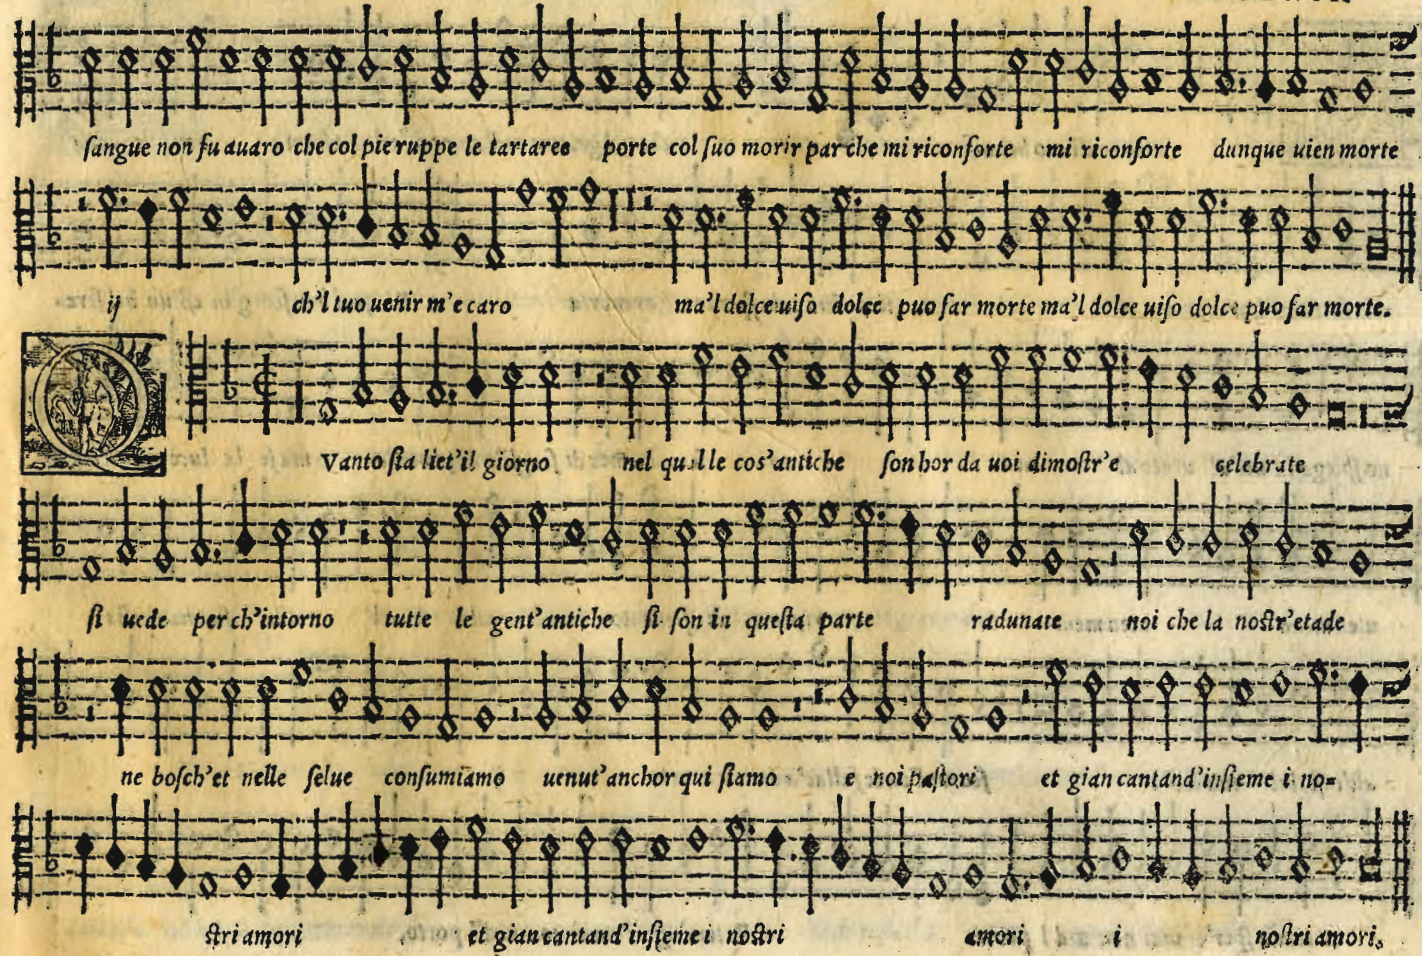 ſangue non fu auaro che col pie ruppe le tartaree porte col ſuo morir par che mi riconforte mi riconforte dunque uien morte
ij ch'l tuo uenir m'e caro ma'l dolce uiſo dolce puo far morte ma'l dolce uiſo dolce puo far morte.
QVanto ſia liet'il giorno nel qual le cos'antiche ſon hor da uoi dimoſtr'e celebrate
ſi uede per ch'intorno tutte le gent'antiche ſi ſon in queſta parte radunate noi che la noſtr'etade
ne boſch'et nelle ſelue conſumiamo uenut'anchor qui ſiamo e noi paſtori et gian cantand'inſieme i no=
ſtri amori et gian cantand'inſieme i noſtri amori i noſtri amori.